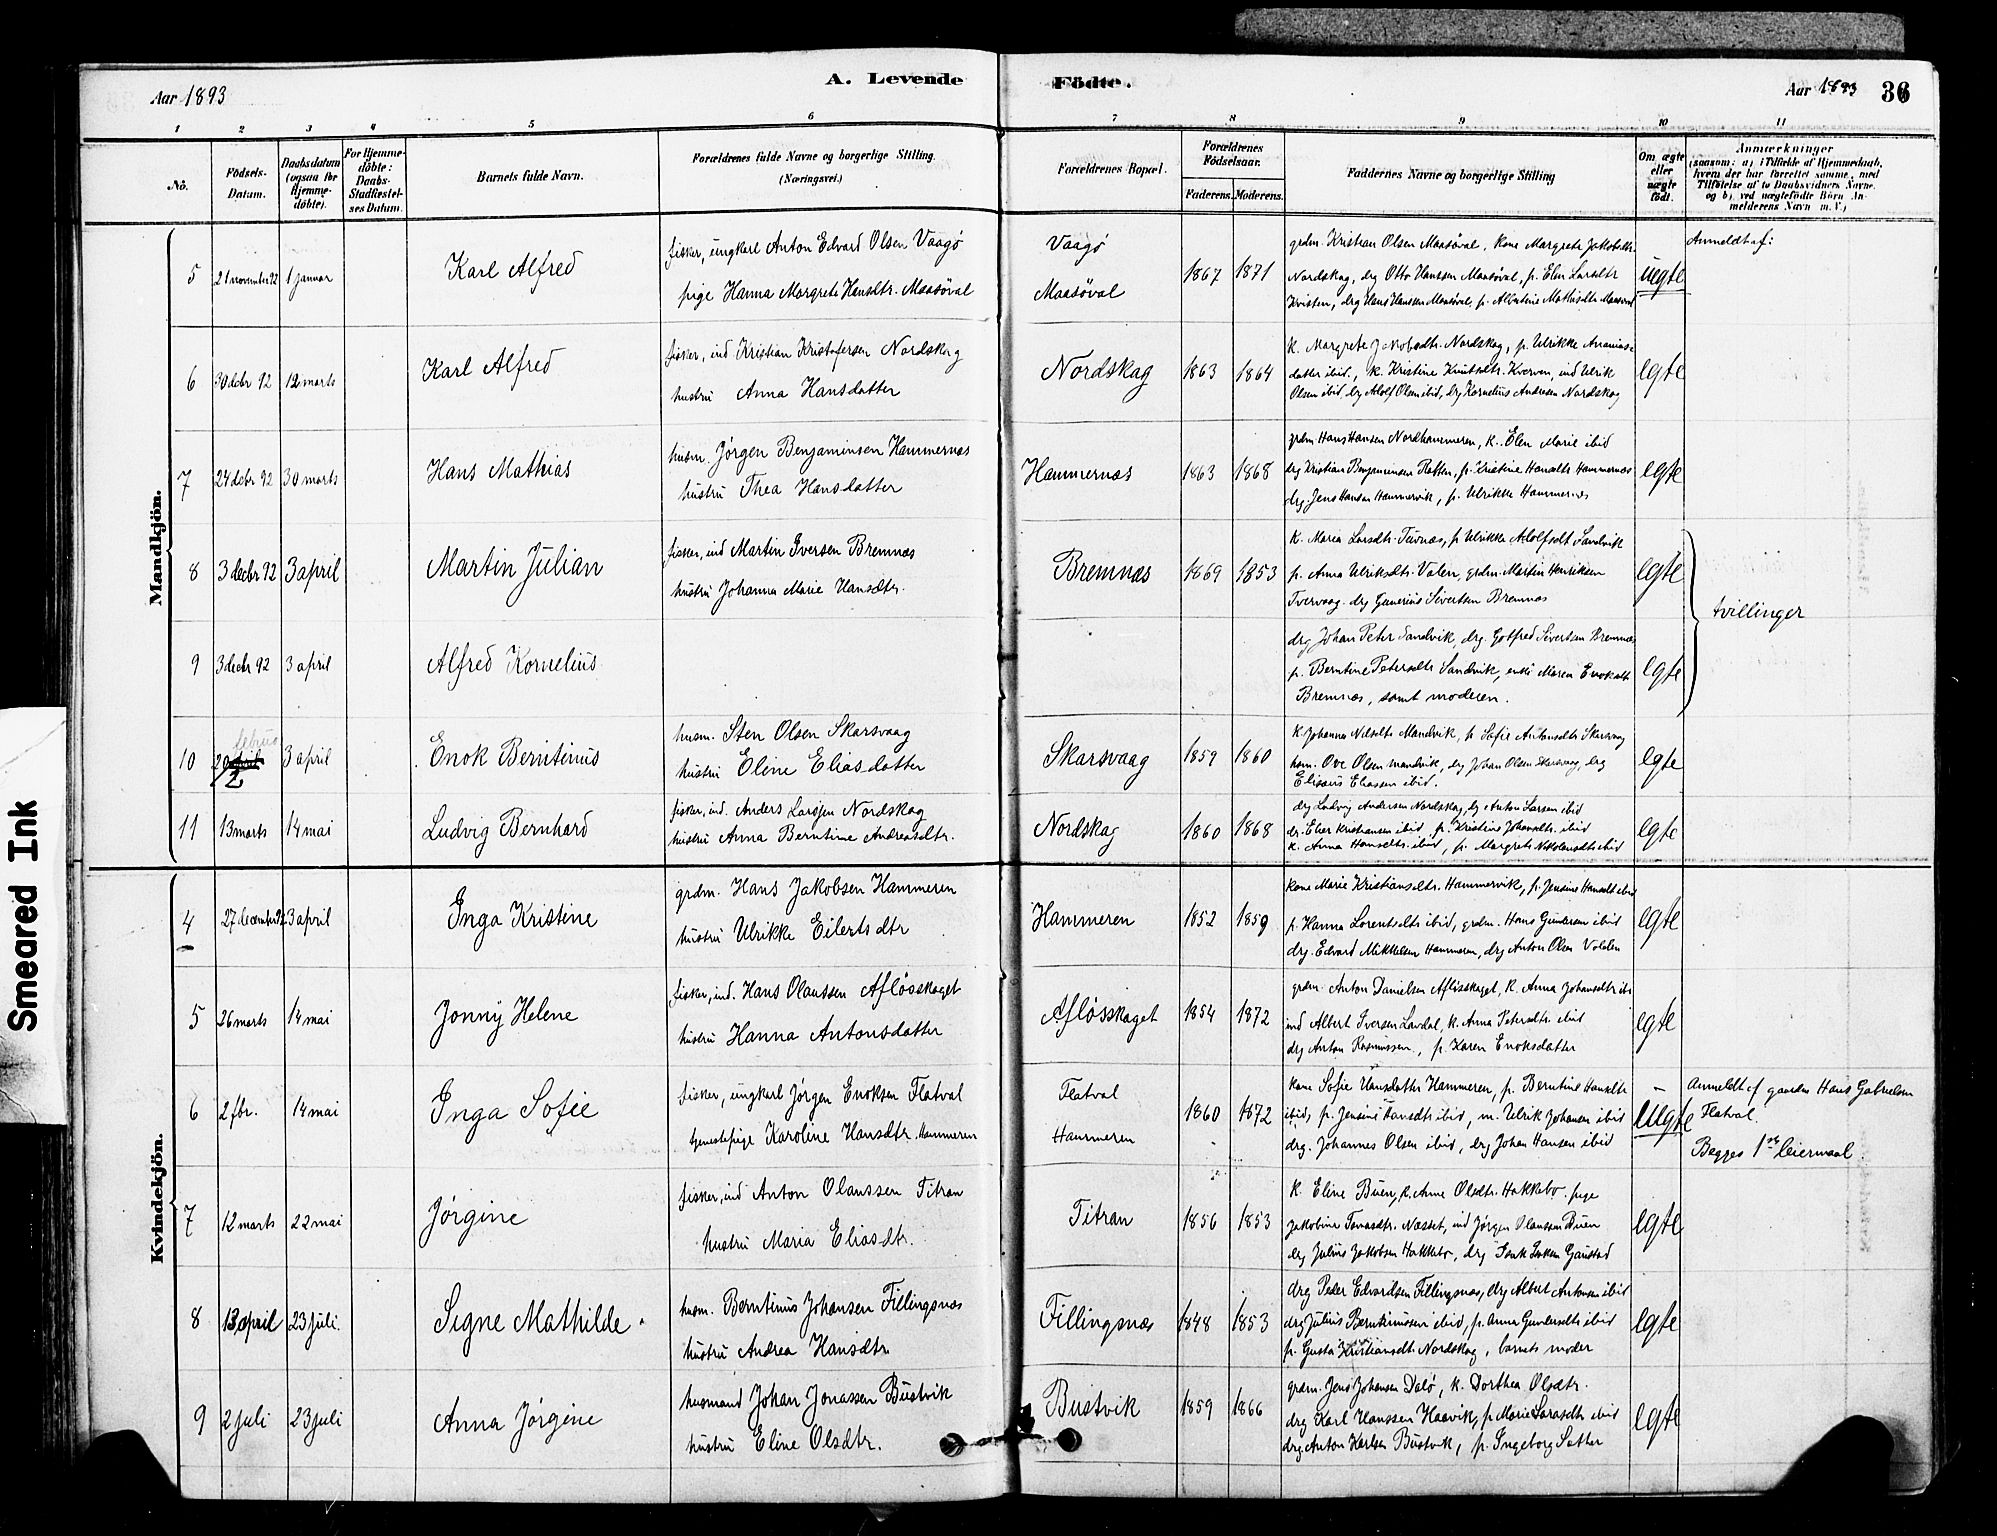 Smeared Ink
A. Levende Födte.
Aar 1893
Aar 1893 36
1 2 3 4 5 6 7 8 9 10 11
No.
Födsels-Datum.
Daabsdatum (ogsaa for Hjemme-döbte).
For Hjemme-döbte: Daabs-Stadfæstel-ses Datum.
Barnets fulde Navn.
Forældrenes fulde Navne og borgerlige Stilling.
(Næringsvei.)
Forældrenes Bopæl.
Forældrenes Födselsaar.
Faderens. Moderens.
Faddernes Navne og borgerlige Stilling
Om ægte eller uægte födt.
Anmærkninger
(saasom: a) i Tilfælde af Hjemmedaab, hvem der har forrettet samme, med Tilföielse af to Daabsvidners Navne, og b) ved uægtefödte Börn An-melderens Navn m. V.)
Mandkjön.
5 21 november 92 1 januar Karl Alfred
fisker, ungkarl Anton Edvard Olsen Vaagö
pige Hanna Margrete Hansdtr. Maasöval
Vaagö
Maasöval
1867 1871
grdm. Kristian Olsen Maasöval, kone Margrete Jakobsdtr.
Nordskag, drg Otto Hanssen Maasöval, p. Elen Larsdtr
Kvisten, drg Hans Hanssen Maasöval, p. Albertine Mathisdtr Maasöval
uegte
Anmeldt af:
6 30 decbr 92 12 marts Karl Alfred
fisker, ind Kristian Kristofersen Nordskag
hustru Anna Hansdatter
Nordskag 1863 1864
k. Margrete Jakobsdtr. Nordskag, p. Ulrikke Ananias-
datter ibid., k. Kristine Knutsdtr. Kverven, ind Ulrik
Olsen ibid, drg Adolf Olsen ibid, drg Kornelius Andresen Nordskag
egte
7 24 decbr 92 30 marts Hans Mathias
husm. Jörgen Benjaminsen Hammernæs
hustru Thea Hansdatter
Hammernæs 1863 1868
grdm Hans Hansen Nordhammeren, k. Elen Marie ibid
drg Kristian Benjaminsen Flatten, p. Kristine Hansdtr Hammernæs
drg. Jens Hansen Hammervik, p. Ulrikke Hammernæs
egte
8 3 decbr 92 3 april Martin Julian
fisker, ind Martin Iversen Bremnæs
hustru Johanna Marie Hansdtr.
Bremnæs 1869 1853
k. Maria Larsdtr. Tuvnæs, p Ulrikke Adolfsdt Sandvik
p. Anna Ulriksdtr. Valen, grdm. Martin Henriksen
Tvervaag. drg Gunerius Sivertsen Bremnæs
egte
tvillinger
9 3 decbr 92 3 april Alfred Kornelius
drg Johan Peter Sandvik, drg. Gotfred Sivertsen Bremnæs
p. Berntine Petersdtr Sandvik, enke Maren Enoksdtr
Bremnæs, samt moderen.
egte
10 20 februar 3 april Enok Berntinus
2
husm. Sten Olsen Skarsvaag
hustru Eline Eliasdatter
Skarsvaag 1859 1860
k Johanna Nilsdtr Mandvik, p Sofie Antonsdtr Skarsvaag
hsm. Ove Olsen Mandvik, drg Johan Olsen Skarsvaag, drg
Elisæus Eliassen ibid.
egte
11 13 marts 14 mai Ludvig Bernhard
fisker, ind. Anders Larssen Nordskag
hustru Anna Berntine Andreasdtr.
Nordskag 1860 1868
drg Ludvig Andersen Nordskag, drg Anton Larsen ibid
dr. Elier Kristiansen ibid, p. Kristine Johansdtr. ibid
k. Anna Hansdtr. ibid, p. Margrete Nikolaisdtr ibid
egte
Kvindekjön.
4 27 december 92 3 april Inga Kristine
grdm. Hans Jakobsen Hammeren
hustru Ulrikke Eilertsdtr
Hammeren 1852 1859
kone Marie Kristiansdtr. Hammervik, p. Jensine Hansdt ibid
p. Hanna Lorentsdtr ibid, grdm. Hans Gundersen ibid
drg. Edvard Mikkelsen Hammeren, drg Anton Olsen Volden
egte
5 26 marts 14 mai Jonny Helene
fisker, ind. Hans Olaussen Aflösskaget
hustru Hanna Antonsdatter
Aflösskaget 1854 1872
grdm. Anton Danielsen Aflösskaget, k. Anna Johansdtr ib
ind Albert Iversen Lavdal, k. Anna Petersdtr. ibid
drg Anton Rasmussen, p. Karen Enoksdatter
egte
6 2 fbr. 14 mai Inga Sofie
fisker, ungkarl Jörgen Enoksen Flatval
tjenestepige Karoline Hansdtr. Hammeren
Flatval
Hammeren
1860 1872
kone Sofie Hansdatter Hammeren, p. Berntine Hansdtr
ibid, p. Jensine Hansdtr ibid, m. Ulrik Johansen ibid
drg. Johannes Olsen ibid, drg Johan Hansen ibid
uegte
Anmeldt af gaardm Hans Gabrielsen
Flatval.
Begges 1ste leiermaal.
7 12 marts 22 mai Jörgine
fisker, ind Anton Olaussen Titran
hustru Maria Eliasdtr.
Titran 1856 1853
k. Eline Buen, k. Anne Olsdtr. Hakkebo. pige
Jakobine Tomasdtr. Næsset, ind Jörgen Olaussen Buen
drg Julius Jakobsen Hakkebo, drg Isak Isaksen Gaustad
egte
8 13 april 23 juli. Signe Mathilde.
husm. Berntinus Johansen Fillingsnæs
hustru Andrea Hansdtr.
Fillingsnæs 1848 1853
drg Peder Edvardsen Fillingsnæs, drg Albert Antonsen ibid
drg Julius Berntinussen ibid, p. Anna Gundersdtr ibid
p. Gusta Kristiansdtr. Nordskag, barnets moder
egte
9 2 juli 23 juli Anna Jörgine
husmand Johan Jonassen Bustvik
hustru Eline Olsdtr.
Bustvik 1859 1866
grdm. Jens Johansen Dalö, k. Dorthea Olsdtr.
drg Karl Hanssen Haavik, p. Marie Larsdtr ibid
drg. Anton Karlsen Bustvik, p. Ingeborg Sætter
egte